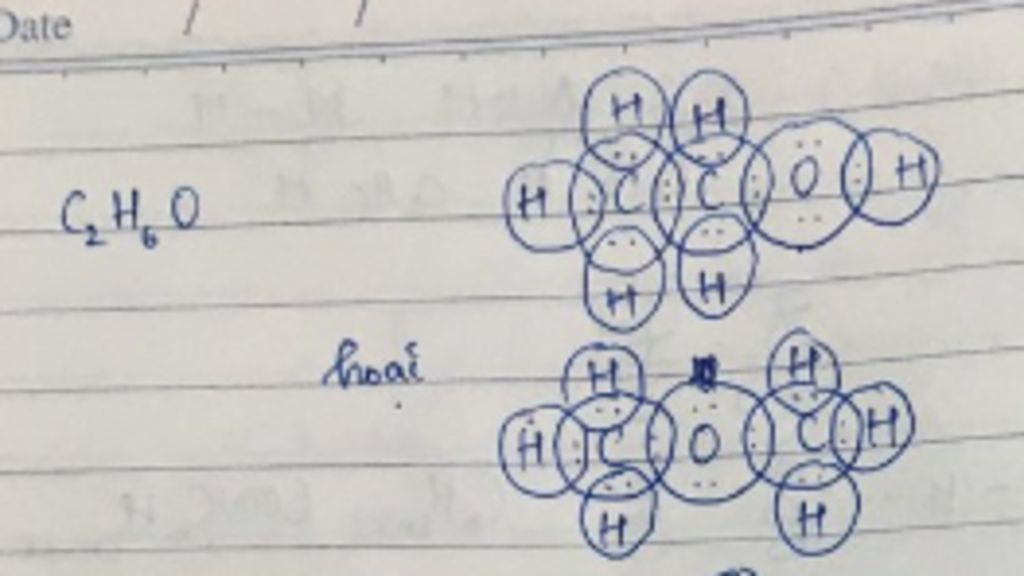 Date / /
H H
C₂H₆O H C C O H
H H
hoặc H H
H C O C H
H H